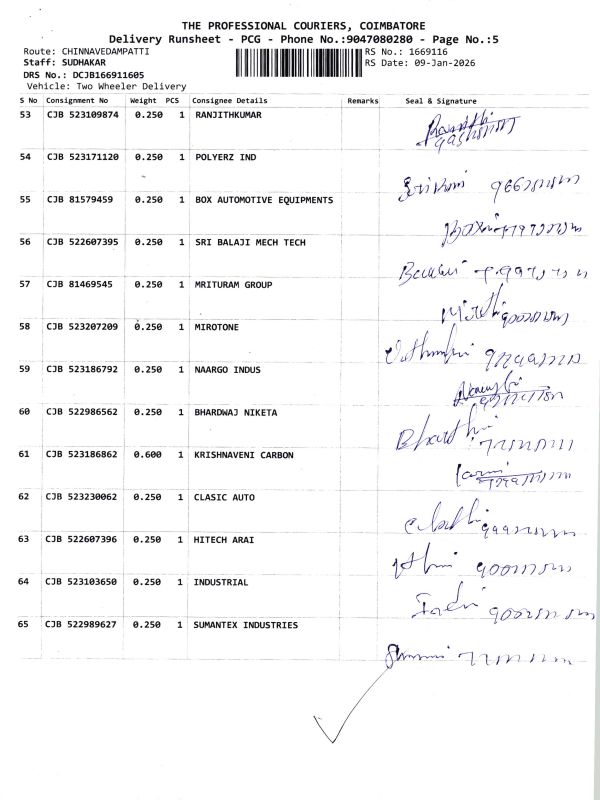 THE PROFESSIONAL COURIERS, COIMBATORE
Delivery Runsheet - PCG - Phone No.:9047080280 - Page No.:5
Route: CHINNAVEDAMPATTI RS No.: 1669116
Staff: SUDHAKAR RS Date: 09-Jan-2026
DRS No.: DCJB166911605
Vehicle: Two Wheeler Delivery
S No Consignment No Weight PCS Consignee Details Remarks Seal & Signature
53 CJB 523109874 0.250 1 RANJITHKUMAR
54 CJB 523171120 0.250 1 POLYERZ IND
55 CJB 81579459 0.250 1 BOX AUTOMOTIVE EQUIPMENTS
56 CJB 522607395 0.250 1 SRI BALAJI MECH TECH
57 CJB 81469545 0.250 1 MRITURAM GROUP
58 CJB 523207209 0.250 1 MIROTONE
59 CJB 523186792 0.250 1 NAARGO INDUS
60 CJB 522986562 0.250 1 BHARDWAJ NIKETA
61 CJB 523186862 0.600 1 KRISHNAVENI CARBON
62 CJB 523230062 0.250 1 CLASIC AUTO
63 CJB 522607396 0.250 1 HITECH ARAI
64 CJB 523103650 0.250 1 INDUSTRIAL
65 CJB 522989627 0.250 1 SUMANTEX INDUSTRIES